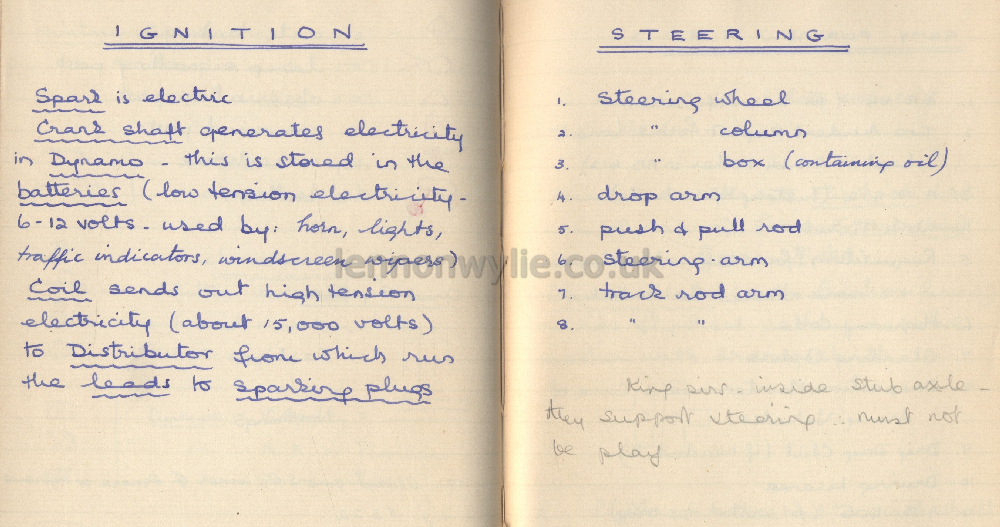 IGNITION
Spark is electric
Crank shaft generates electricity
in Dynamo - this is stored in the
batteries (low tension electricity -
6-12 volts - used by: horn, lights,
traffic indicators, windscreen wipers)
Coil sends out high tension
electricity (about 15,000 volts)
to Distributor from which run
the leads to sparking plugs
STEERING
1. Steering wheel
2. " column
3. " box (containing oil)
4. drop arm
5. push & pull rod
6. steering arm
7. track rod arm
8. " "
King pins - inside stub axle -
they support steering .. must not
be play
lennonwylie.co.uk